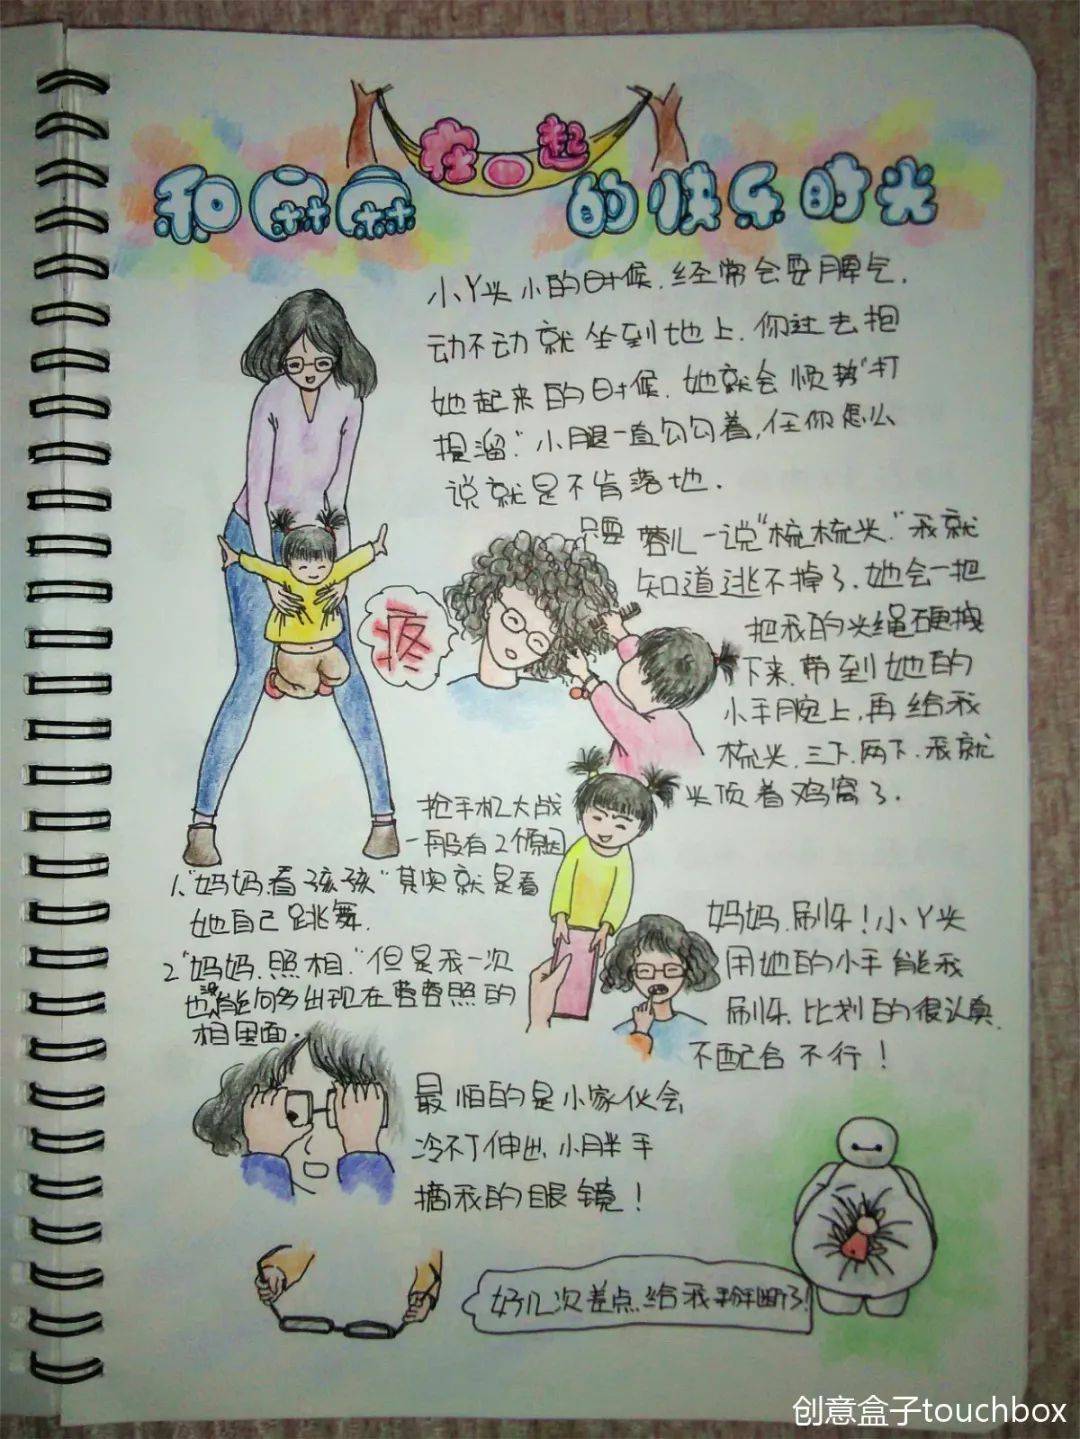 和麻麻在一起的快乐时光
小丫头小的时候.经常会耍脾气.
动不动就坐到地上.你过去抱
她起来的时候.她就会顺势"打
提溜".小腿一直勾勾着,任你怎么
说就是不肯落地.
只要蓉儿一说"梳梳头."我就
知道逃不掉了.她会一把
把我的头绳硬拽
下来.带到她的
小手腕上,再给我
梳头.三下.两下.我就
头顶着鸡窝了.
疼
抢手机大战
一般有2个原因
1."妈妈看孩孩"其实就是看
她自己跳舞.
2"妈妈.照相."但是我一次
也没能向多出现在蓉蓉照的
相里面.
妈妈.刷牙!小丫头
用她的小手能我
刷牙.比划的很认真.
不配合不行!
最怕的是小家伙会
冷不丁伸出小胖手
摘我的眼镜!
好几次差点给我掰断了!
创意盒子touchbox